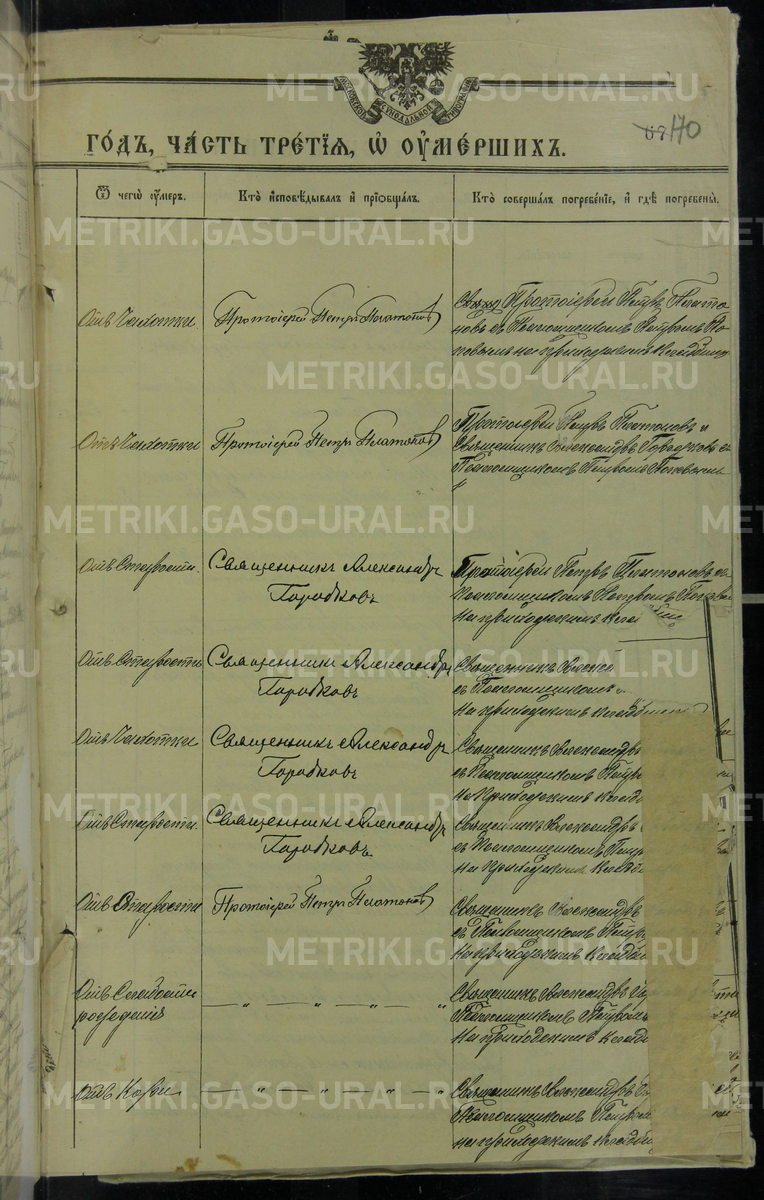 МОСКОВСКОЙ СѴНОДАЛЬНОЙ ТИПОГРАФІИ
170
ГОДЪ, ЧАСТЬ ТРЕТІЯ, Ѡ ОУМЕРШИХЪ.
Ѿ чегѡ оумеръ.
Кто исповѣдывалъ и пріобщалъ.
Кто совершалъ погребеніе, и гдѣ погребены.
Отъ Чахотки
Протоіерей Петръ Платоновъ
Протоіерей Петръ Плато
новъ съ Псаломщикомъ Петромъ По
повымъ на приходскомъ кладбищѣ
Отъ Чахотки
Протоіерей Петръ Платоновъ
Протоіерей Петръ Платоновъ и
Священникъ Александръ Городковъ съ
Псаломщикомъ Петромъ Поповымъ
Отъ Старости
Священникъ Александръ
Городковъ
Протоіерей Петръ Платоновъ съ
Псаломщикомъ Петромъ
на приходскомъ
Отъ Старости
Священникъ Александръ
Городковъ
Священникъ
съ Псаломщикомъ
на приходскомъ
Отъ Чахотки
Священникъ Александръ
Городковъ
Священникъ Александръ
съ Псаломщикомъ
на приходскомъ
Отъ Старости
Священникъ Александръ
Городковъ
Священникъ Александръ
съ Псаломщикомъ
на приходскомъ
Отъ Старости
Протоіерей Петръ Платоновъ
Священникъ Александръ
съ Псаломщикомъ
на приходскомъ
Отъ Слабости
рожденія
— „ — „ — „ — „
Священникъ Александръ
Псаломщикомъ Петромъ
на приходскомъ
Отъ Кори
— „ — „ — „ — „
Священникъ Александръ
Псаломщикомъ Петромъ
на приходскомъ
METRIKI.GASO-URAL.RU